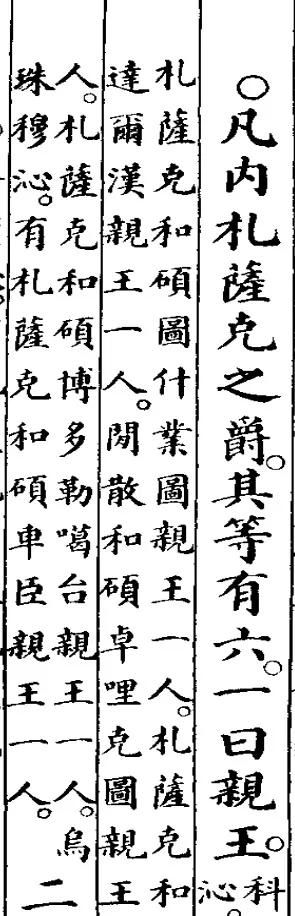 ○凡内札薩克之爵。其等有六。一曰親王。科沁
札薩克和碩圖什業圖親王一人。札薩克和
達爾漢親王一人。閒散和碩卓哩克圖親王
人。札薩克和碩博多勒噶台親王一人。烏
珠穆沁。有札薩克和碩車臣親王一人。二